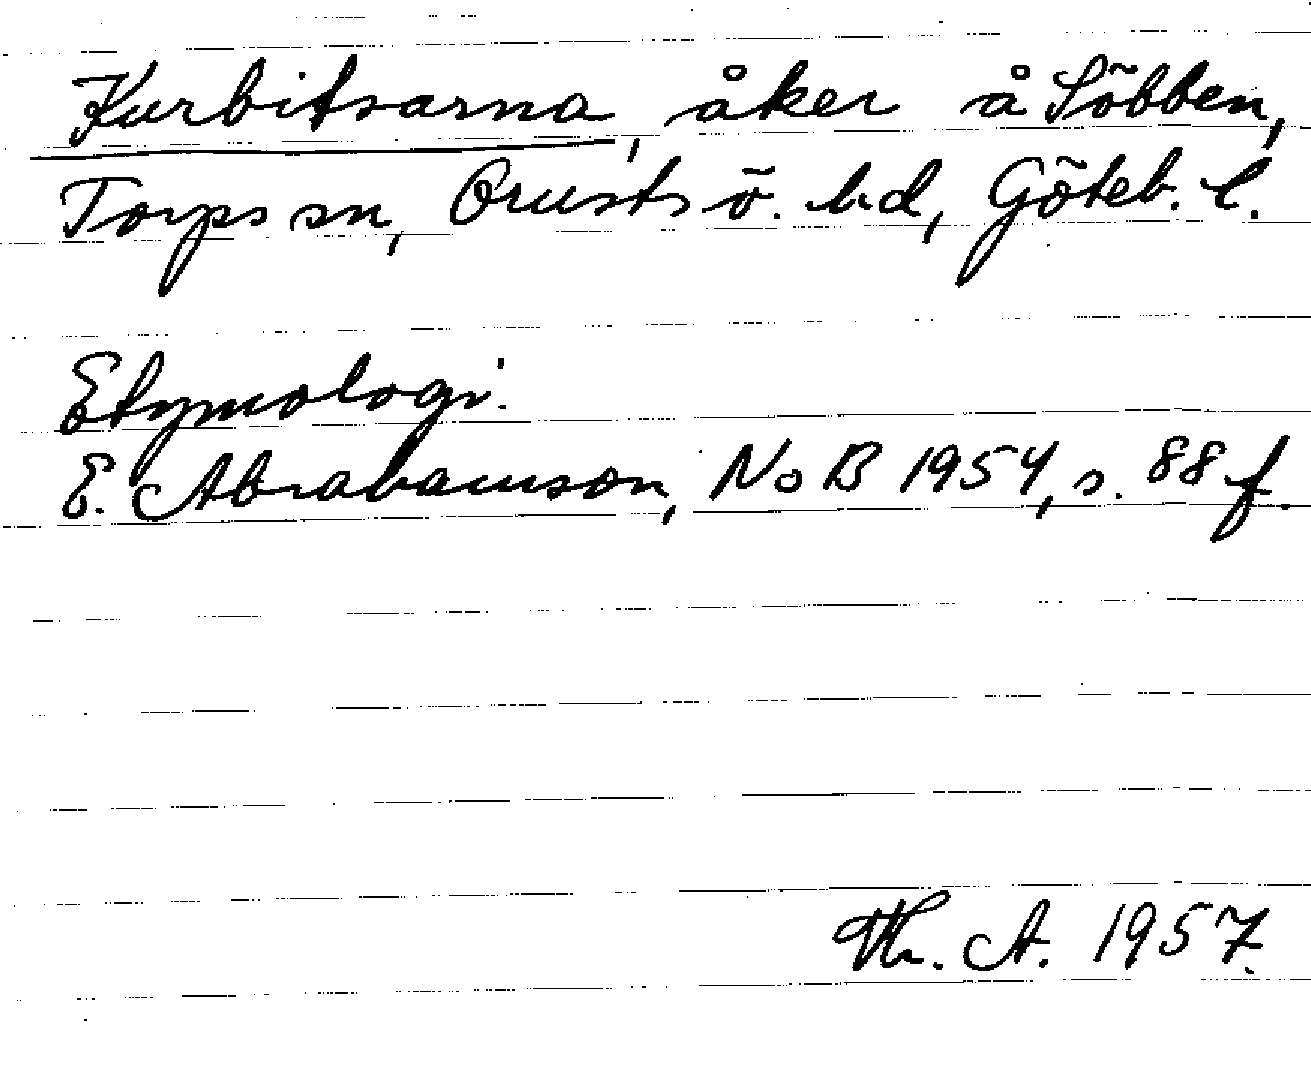 Kurbitsarna, åker å Söbben,
Torps sn, Orusts ö. hd, Göteb. l.
Etymologi:
E. Abrahamson, NoB 1954, s. 88 f.
Th. A. 1957.